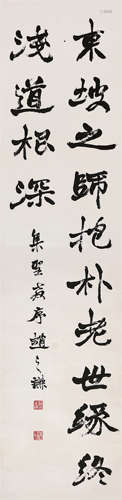 東坡之師抱朴老世緣終
淺道根深
集聖教序趙之謙